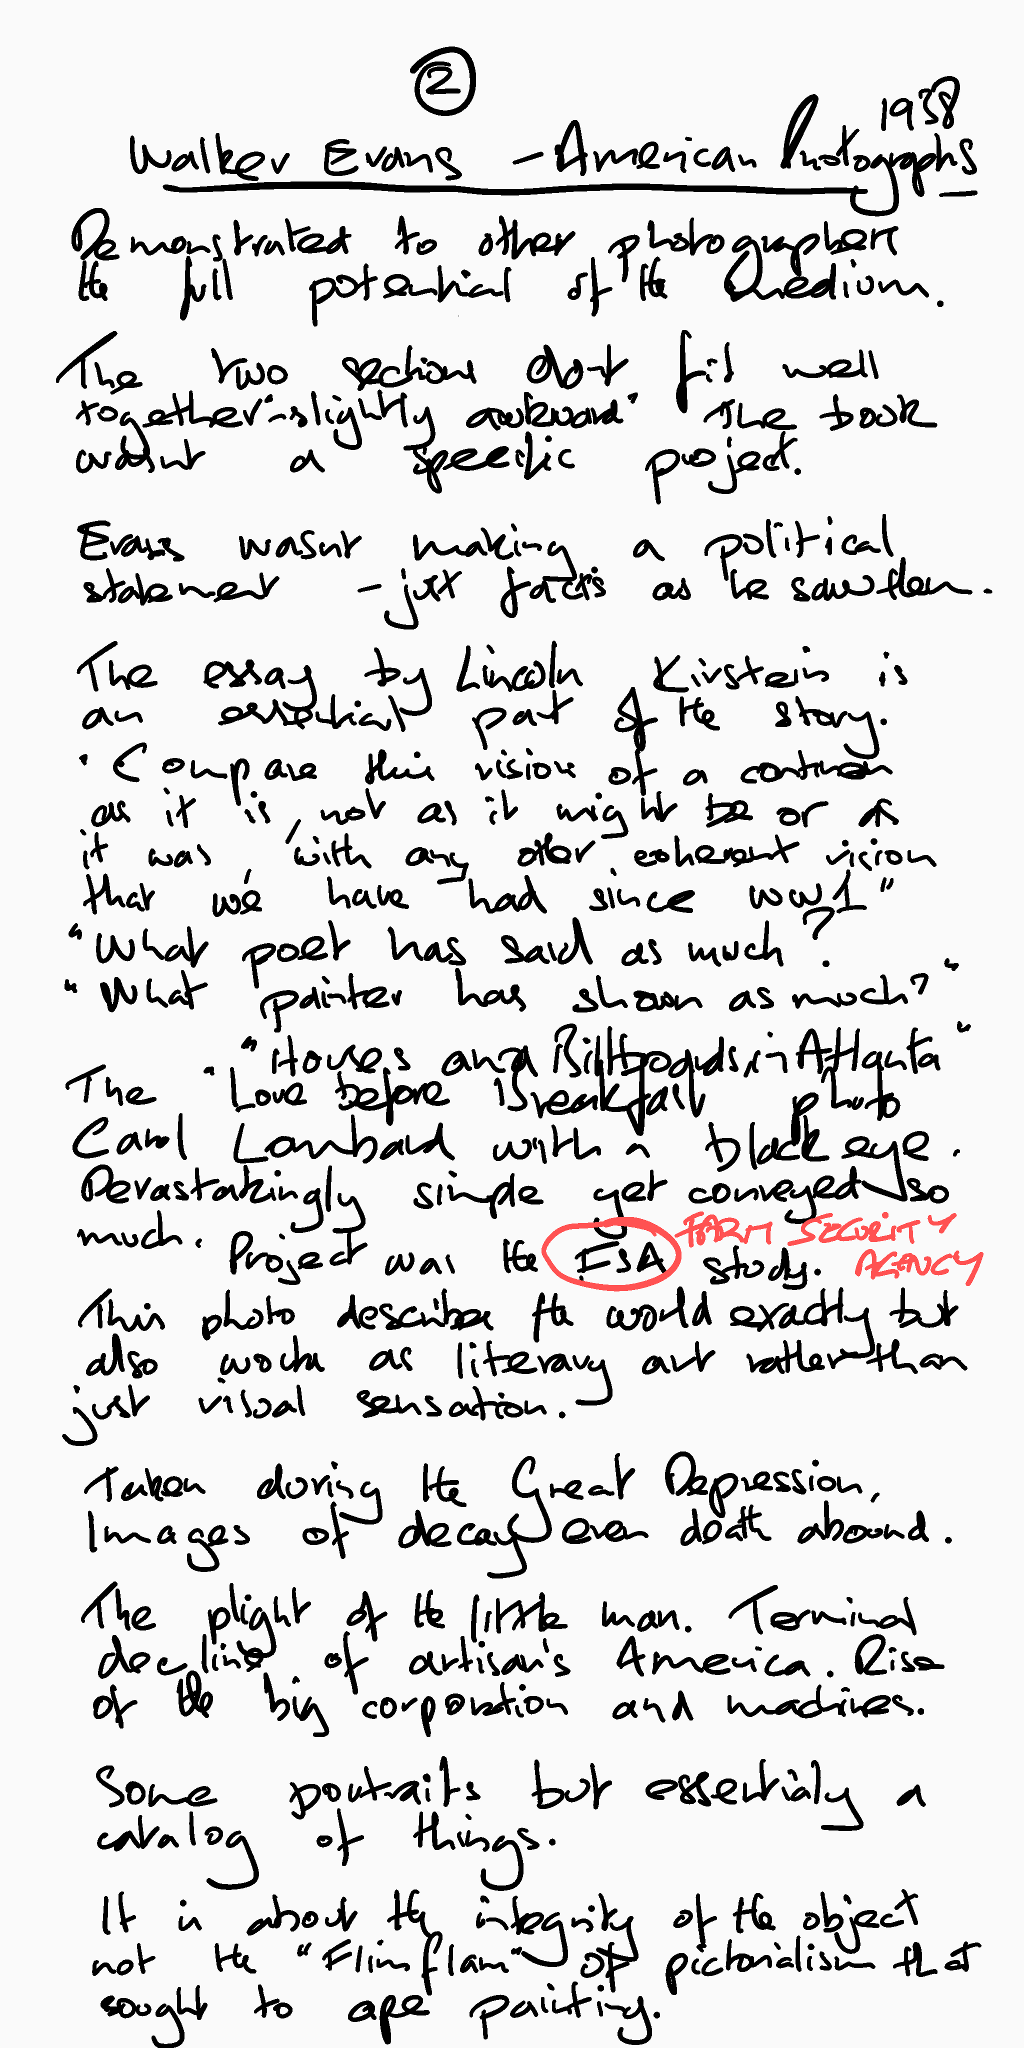 2
1938
Walker Evans - American Photographs
Demonstrated to other photographers
the full potential of the medium.
The two sections don't fit well
together "slightly awkward" The book
wasnt a specific project.
Evans wasnt making a political
statement - just facts as he saw them.
The essay by Lincoln Kirstein is
an essential part of the story.
"Compare this vision of a continen
as it is, not as it might be or as
it was, with any other coherent vision
that we have had since WW1"
"What poet has said as much?
"What painter has shown as much?"
"Houses and Billboards in Atlanta"
The "Love before Breakfast photo
Carol Lombard with a black eye.
Devastakingly simple yet conveyed so
much. Project was the FSA study. FARM SECURITY
AGENCY
This photo describes the world exactly but
also works as literary art rather than
just visual sensation.
Taken during the Great Depression,
Images of decay even death abound.
The plight of the little man. Terminal
decline of artisan's America. Rise
of the big corporation and machines.
Some portraits but essentialy a
catalog of things.
It is about the integrity of the object
not the "Flimflam" of pictorialism that
sought to ape painting.